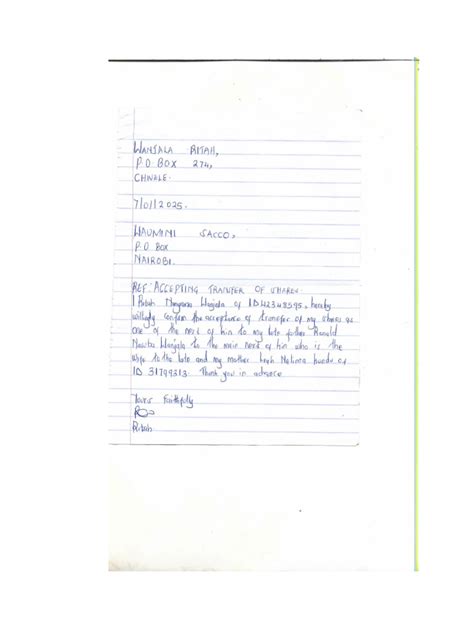 WANJALA RITAH,
P.O BOX 274,
CHWALE.
7/01/2025.
WAUMINI SACCO,
P.O. BOX
NAIROBI.
REF: ACCEPTING TRANSFER OF SHARES
I Ritah Wanjala of ID 42348595, hereby
willingly confirm the acceptance of transfer of my shares as
one of the next of kin to my late father Ronald
Wanjala to the main next of kin who is the
wife to the late and my mother of
ID 31799313. Thank you in advance
Yours Faithfully
Ritah